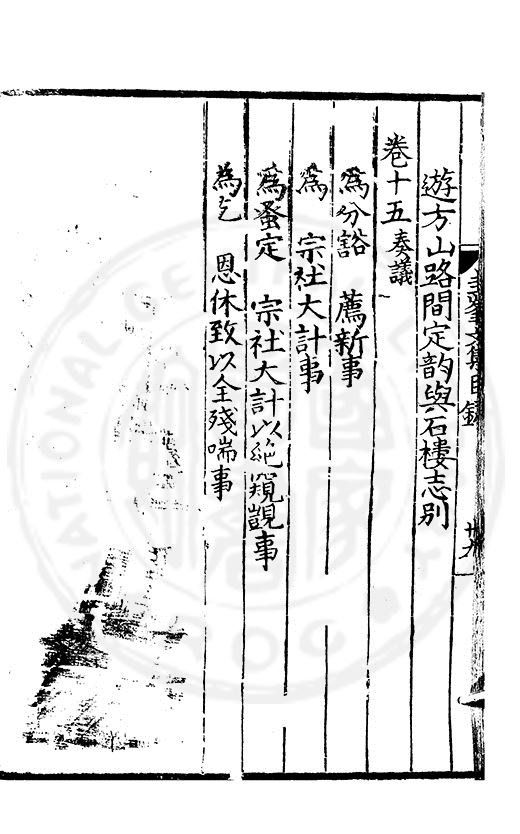 遊方山路間定韵與石樓志別
卷十五 奏議
為分豁 薦新事
為 宗社大計事
為蚤定 宗社大計以絕窺覬事
為乞 恩休致以全殘喘事
文集目錄